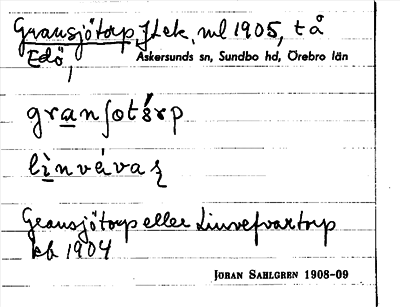 Gransjötorp, Jlek. ml 1905, t å
Edö,
Askersunds sn, Sundbo hd, Örebro län
granʃotǿrp
lìnvávaꝜ
Gransjötorp eller Linvefvartorp
kb 1904
JOHAN SAHLGREN 1908-09